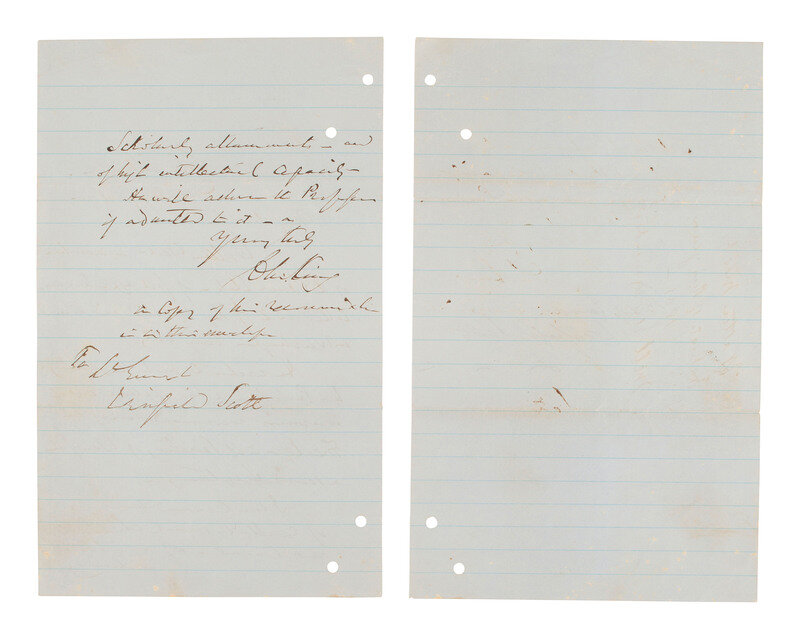 Scholarly attainments – and
of high intellectual capacity –
He will adorn the Profession
if admitted to it –
Yours truly
King
a copy of his
is in this envelope
To Lt Genl
Winfield Scott